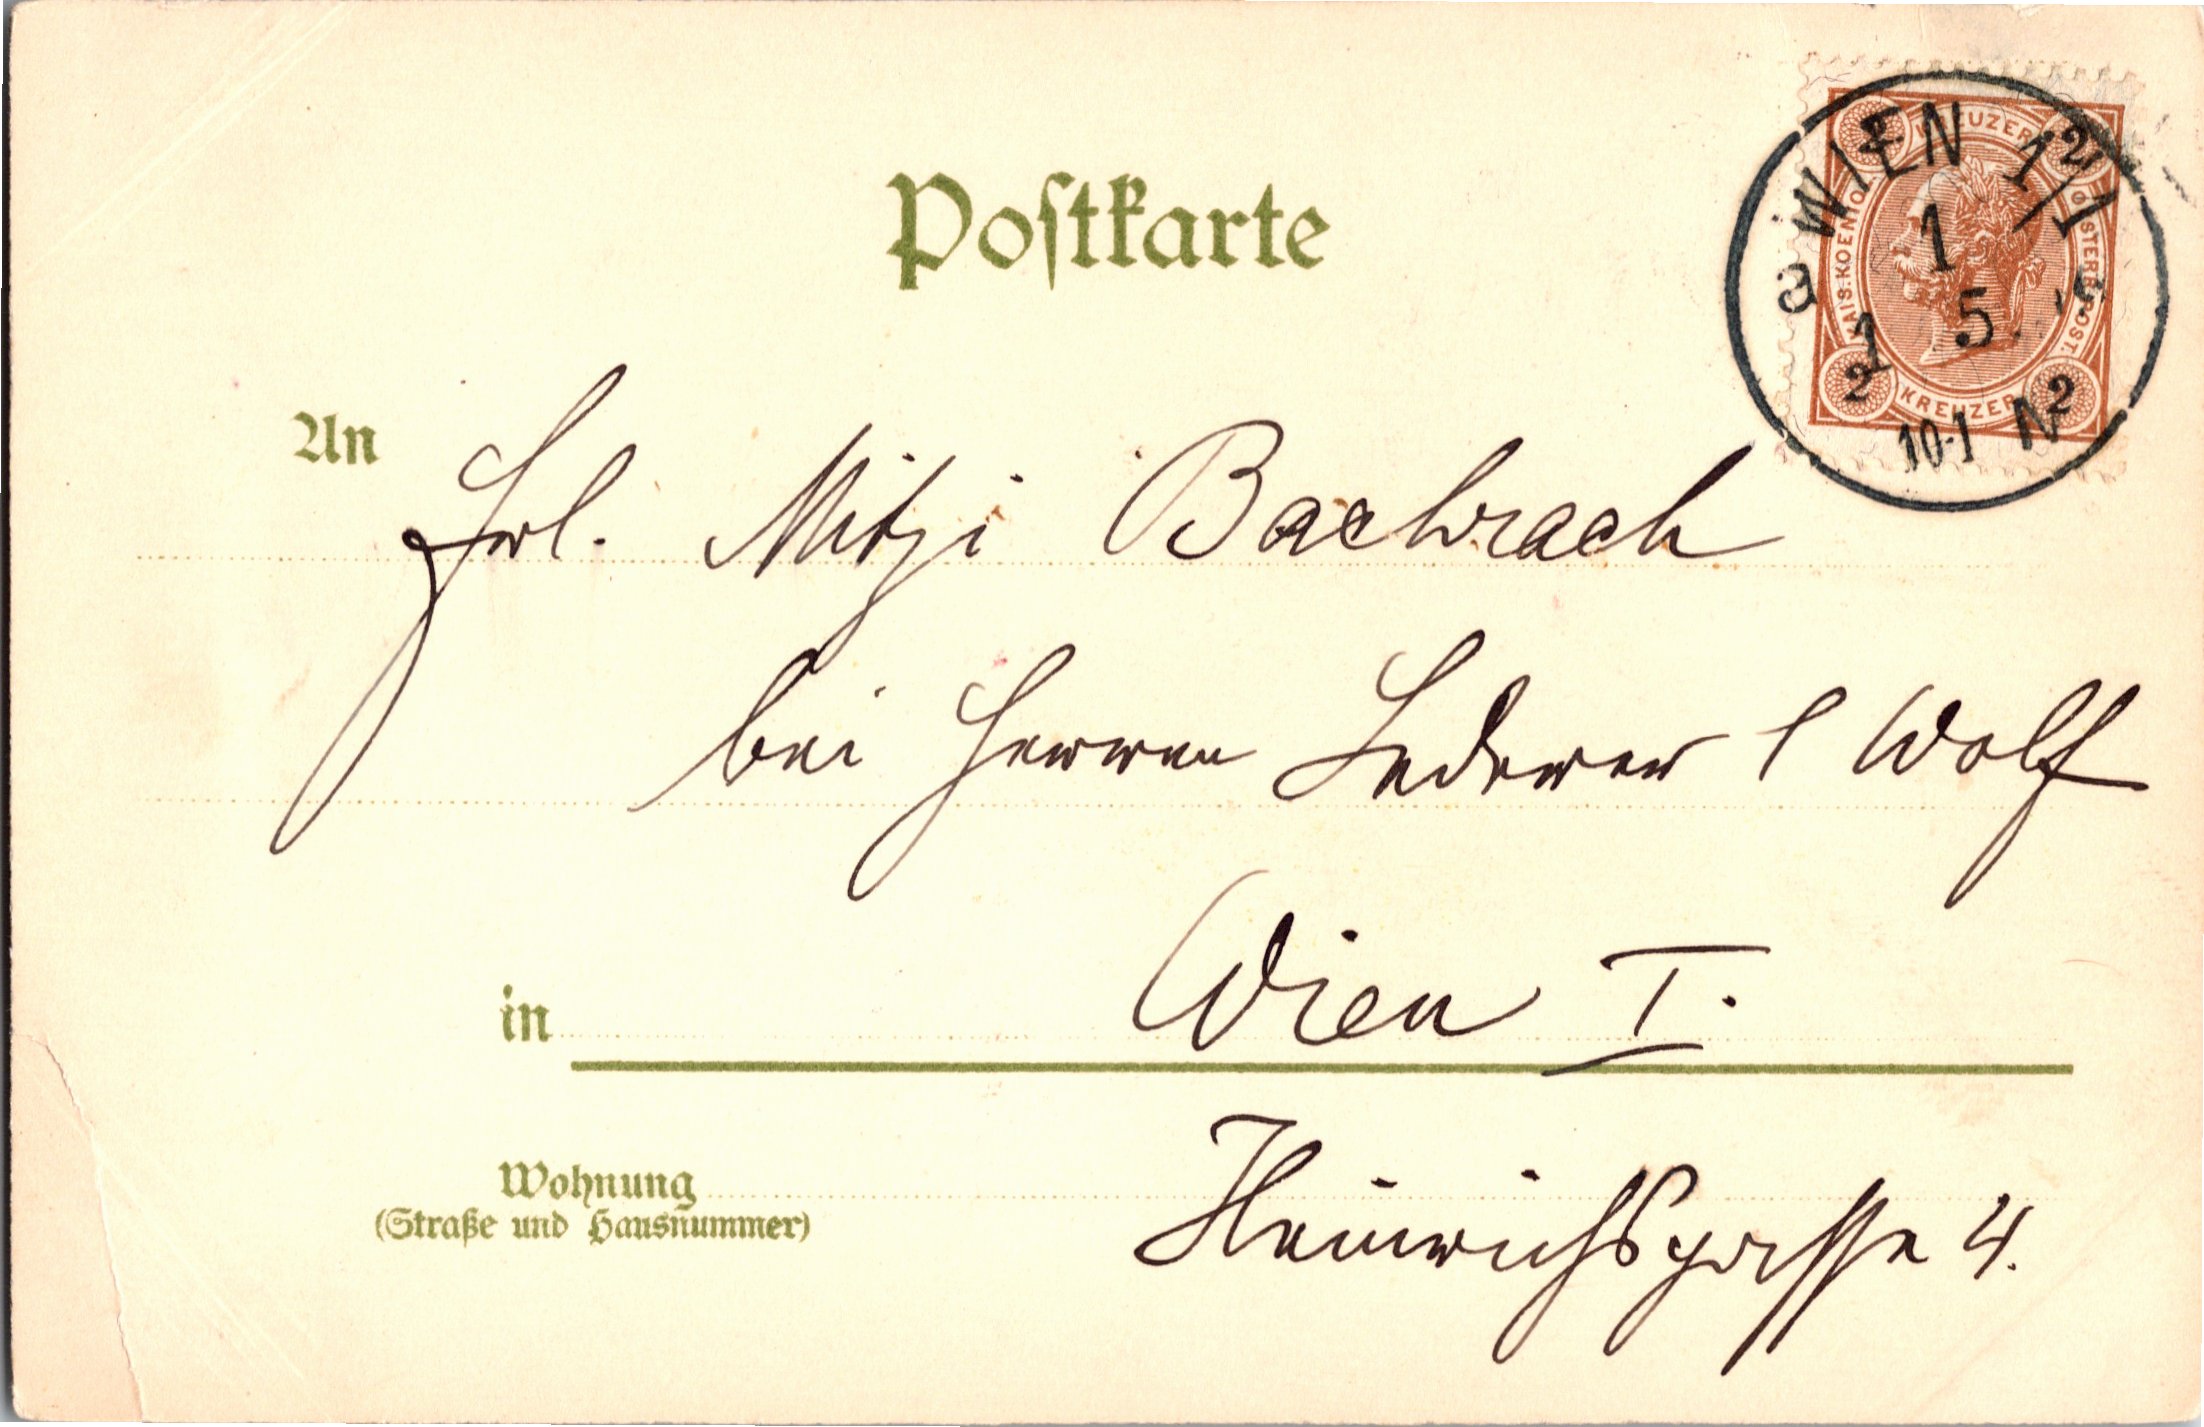 Postkarte
WIEN 1/1
1
1 5
10-1 N
KREUZER
KAIS.KOEN.
OESTERR.POST.
2 2
2 2
KREUZER
An
Frl. Mitzi Bachrach
bei Herren Lederer & Wolf
in
Wien I.
Wohnung
(Straße und Hausnummer)
Heinrichsgasse 4.